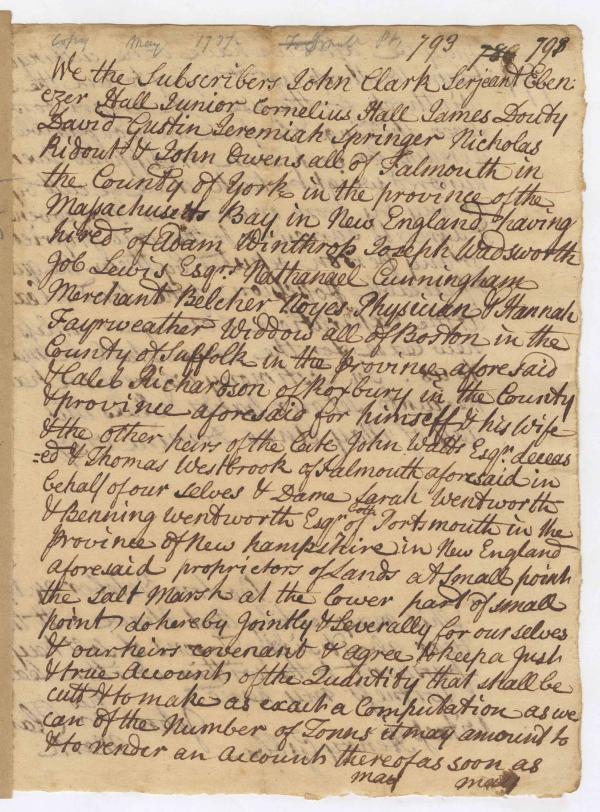 Copy May 1737 793 798
We the Subscribers John Clark Serjeant Eben:
ezer Hall Junior Cornelius Hall James Douty
David Gustin Jeremiah Springer Nicholas
Ridout & John Owens all of Falmouth in
the County of York in the province of the
Massachusetts Bay in New England having
hired of Adam Winthrop Joseph Wadsworth
Job Lewis Esqrs Nathanael Cunningham
Merchant Belcher Noyes Physician & Hannah
Fayrweather Widdow all of Boston in the
County of Suffolk in the province aforesaid
& Caleb Richardson of Roxbury in the County
& province aforesaid for himself & his Wife
& the other heirs of the Late John Watts Esqr. deceas
=ed & Thomas Westbrook of Falmouth aforesaid in
behalf of our selves & Dame Sarah Wentworth
& Benning Wentworth Esqr both of Portsmouth in the
Province of New hampshire in New England
aforesaid proprietors of Lands at Small point
the Salt Marsh at the Lower part of small
point do hereby Jointly & Severally for our selves
& our heirs covenant & agree to keep a Just
& true Account of the Quantity that shall be
cutt & to make as exact a Computation as we
can of the Number of Tonns it may amount to
& to render an Account thereof as soon as
may may